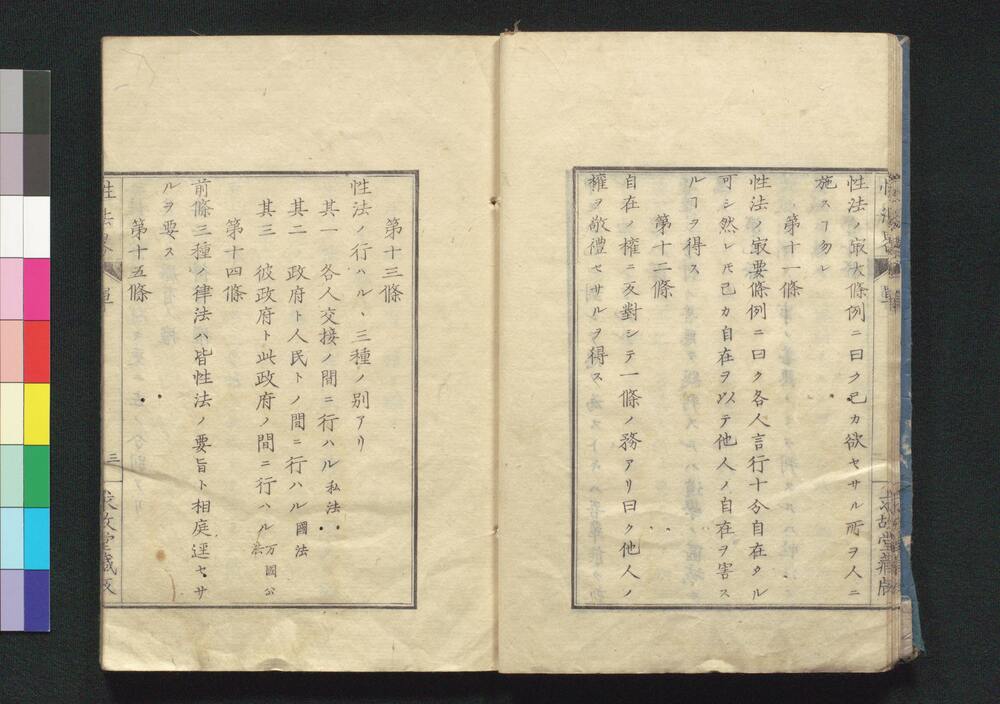 性法ノ㝡大條例ニ曰ク己カ欲セサル所ヲ人ニ
施スヿ勿レ
第十一條
性法ノ㝡要條例ニ曰ク各人言行十分自在タル
可シ然レ𪜈己カ自在ヲ以テ他人ノ自在ヲ害ス
ルヿヲ得ス
第十二條
自在ノ權ニ反對シテ一條ノ務アリ曰ク他人ノ
權ヲ敬禮セサルヲ得ス
第十三條
性法ノ行ハル、三種ノ別アリ
其一 各人交接ノ間ニ行ハル私法
其二 政府ト人民トノ間ニ行ハル國法
其三 彼政府ト此政府ノ間ニ行ハル万國公法
第十四條
前條三種ノ律法ハ皆性法ノ要旨ト相庭逕セサ
ルヲ要ス
第十五條
性法畧
三
求故堂藏版